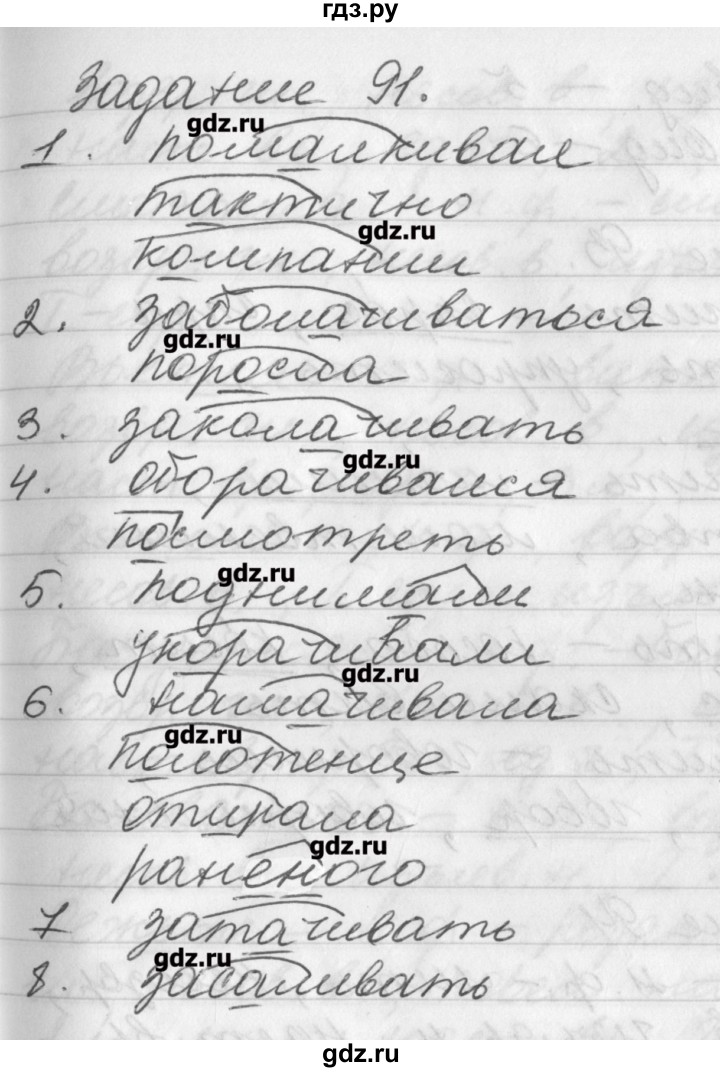 гдз.ру
Задание 91.
gdz.ru
1. помалкивал
тактично
gdz.ru
компании
2. заболачиваться
gdz.ru
поросла
3. заколачивать
gdz.ru
4. оборачивался
посмотреть
gdz.ru
5. поднимали
укорачивали
gdz.ru
6. намачивала
gdz.ru
полотенце
отирала
gdz.ru
раненого
7 затачивать
gdz.ru
8. засаливать
gdz.ru